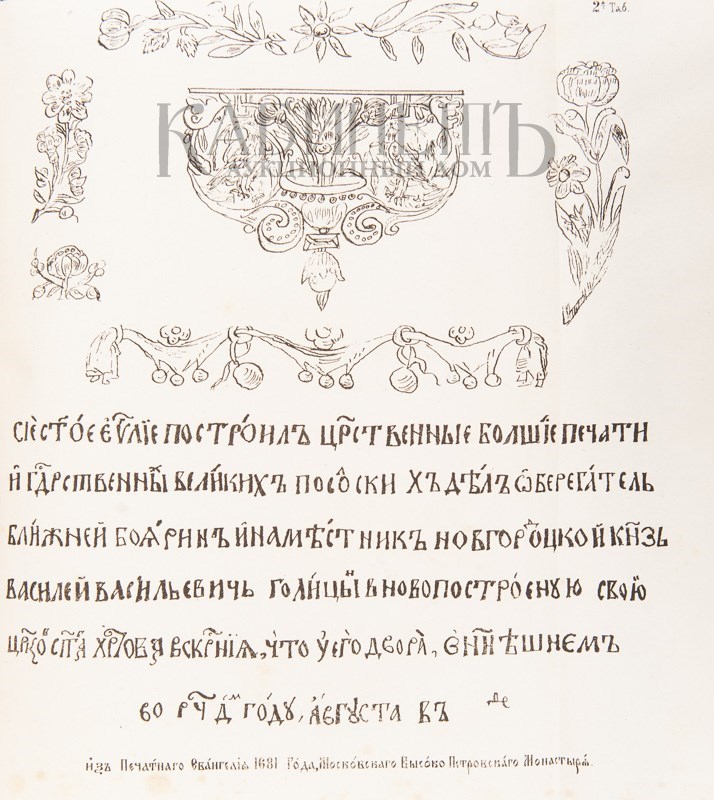 2ª Таб.
КАБИНЕТЪ
АУКЦИОННЫЙ ДОМ
СІЕ СТ҃ОЕ ЕѴ҃ЛІЕ ПОСТРОИЛЪ ЦРС҃ТВЕННЫЕ БОЛШІЕ ПЕЧАТИ
И ГДРСТВЕННЫХ ВЕЛИКИХЪ ПОСОСКИ ХЪ ДѢЛЪ ѠБЕРЕГАТЕЛЬ
БЛИЖНЕЙ БОЯРИНЪ И НАМѢСТНИКЪ НОВГОРОЦКОЙ КН҃ЗЬ
ВАСИЛЕЙ ВАСИЛЬЕВИЧЬ ГОЛИЦЫ В НОВОПОСТРОЕНУЮ СВОЮ
ВСКР҃НІЯ, ЧТО У ЕГО ДВОРА, НН҃ѢШНЕМЪ
ВО ГОДУ, АВГУСТА ВЪ ДЕ
Изъ Печатнаго Евангелія 1681 Года, Московскаго Высоко Петровскаго Монастыря.